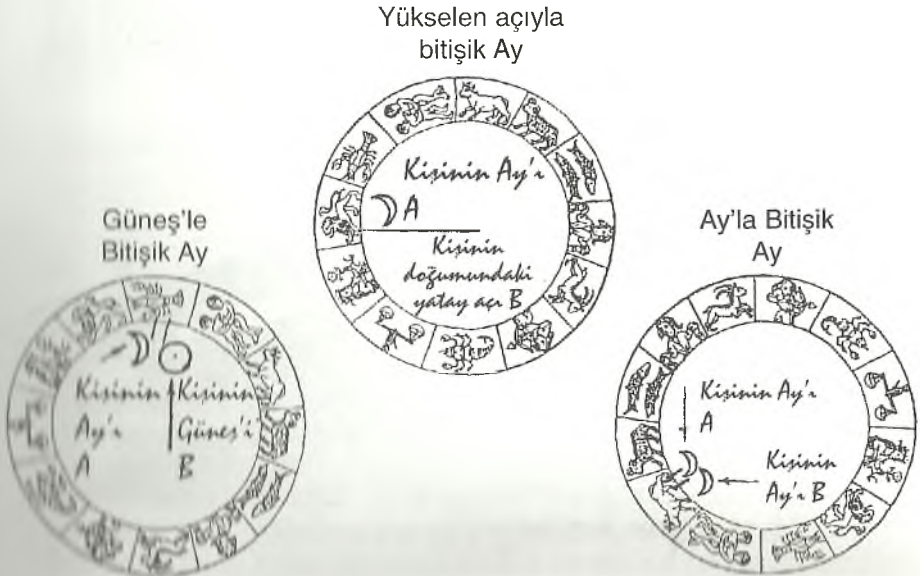 Yükselen açıyla
bitişik Ay
Kişinin Ay'ı
A
Kişinin
doğumundaki
yatay açı B
Güneş'le
Bitişik Ay
Kişinin
Ay'ı
A
Kişinin
Güneş'i
B
Ay'la Bitişik
Ay
Kişinin Ay'ı
A
Kişinin
Ay'ı B